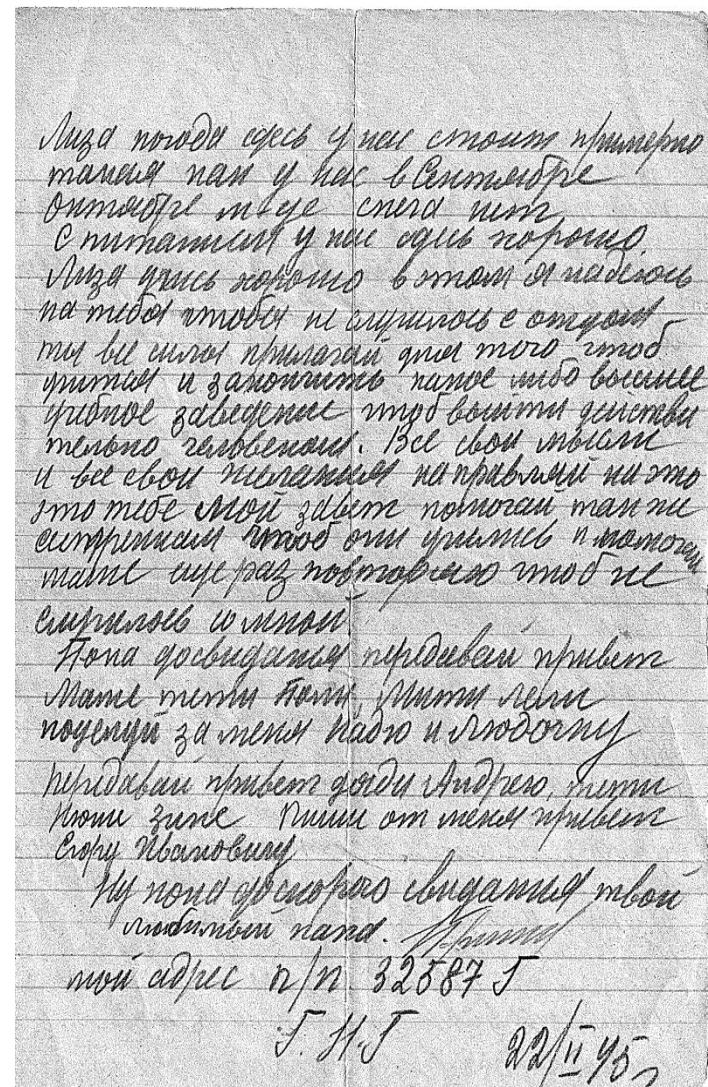 Лиза погода сдесь у нас стоит примерно
такая как у нас в Сентябре
Октябре м-це снега нет
С питанием у нас сдесь хорошо
Лиза учись хорошо в этом я надеюсь
на тебя чтобы не случилось с отцом
ты все силы прилагай для того чтоб
учится и закончить какое либо высшее
учебное заведение чтоб выйти действи
тельно человеком. Все свои мысли
и все свои желания направляй на это
это тебе мой завет помогай так же
сестренкам чтоб они учились и помогай
маме еще раз повторяю чтоб не
случилось со мной
Пока досвидания передавай привет
Маме тети Поли, Мити лели
поцелуй за меня Надю и Любочку
передавай привет дяди Андрею, тети
Нюши Зине Пиши от меня привет
Егору Ивановичу
Ну пока доскорого свидания твой
любимый папа.
мой адрес п/п 32587 Г
Г. И. Г 22/II 45